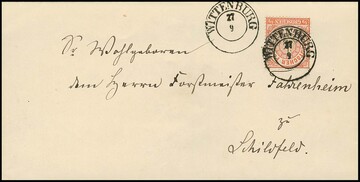 WITTENBURG
27
9
WITTENBURG
27
9
Sr Wohlgeboren
dem Herrn Forstmeister Fahrenheim
zu
Schildfeld.